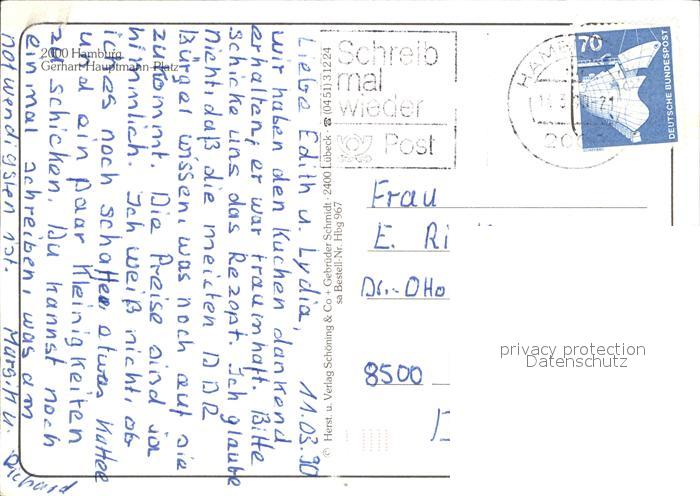 2000 Hamburg
Gerhart-Hauptmann-Platz
11.03.90
Liebe Edith u. Lydia,
wir haben den Kuchen dankend
erhalten, er war traumhaft. Bitte
schicke uns das Rezept. Ich glaube
nicht, daß die meisten DDR
Bürger wissen, was noch auf sie
zukommt. Die Preise sind ja
himmlich. Ich weiß nicht, ob
ich es noch schaffe etwas Kaffee
und ein paar Kleinigkeiten
zu schicken. Du kannst noch
einmal schreiben, was am
notwendigsten ist. Margit u.
Richard
© Herst. u. Verlag Schöning & Co + Gebrüder Schmidt · 2400 Lübeck ☎ (0451) 31224
sa Bestell-Nr. Hbg 967
Schreib
mal
wieder
Post
70
DEUTSCHE BUNDESPOST
Frau
E. Ri
Dr.-Otto
8500
privacy protection
Datenschutz